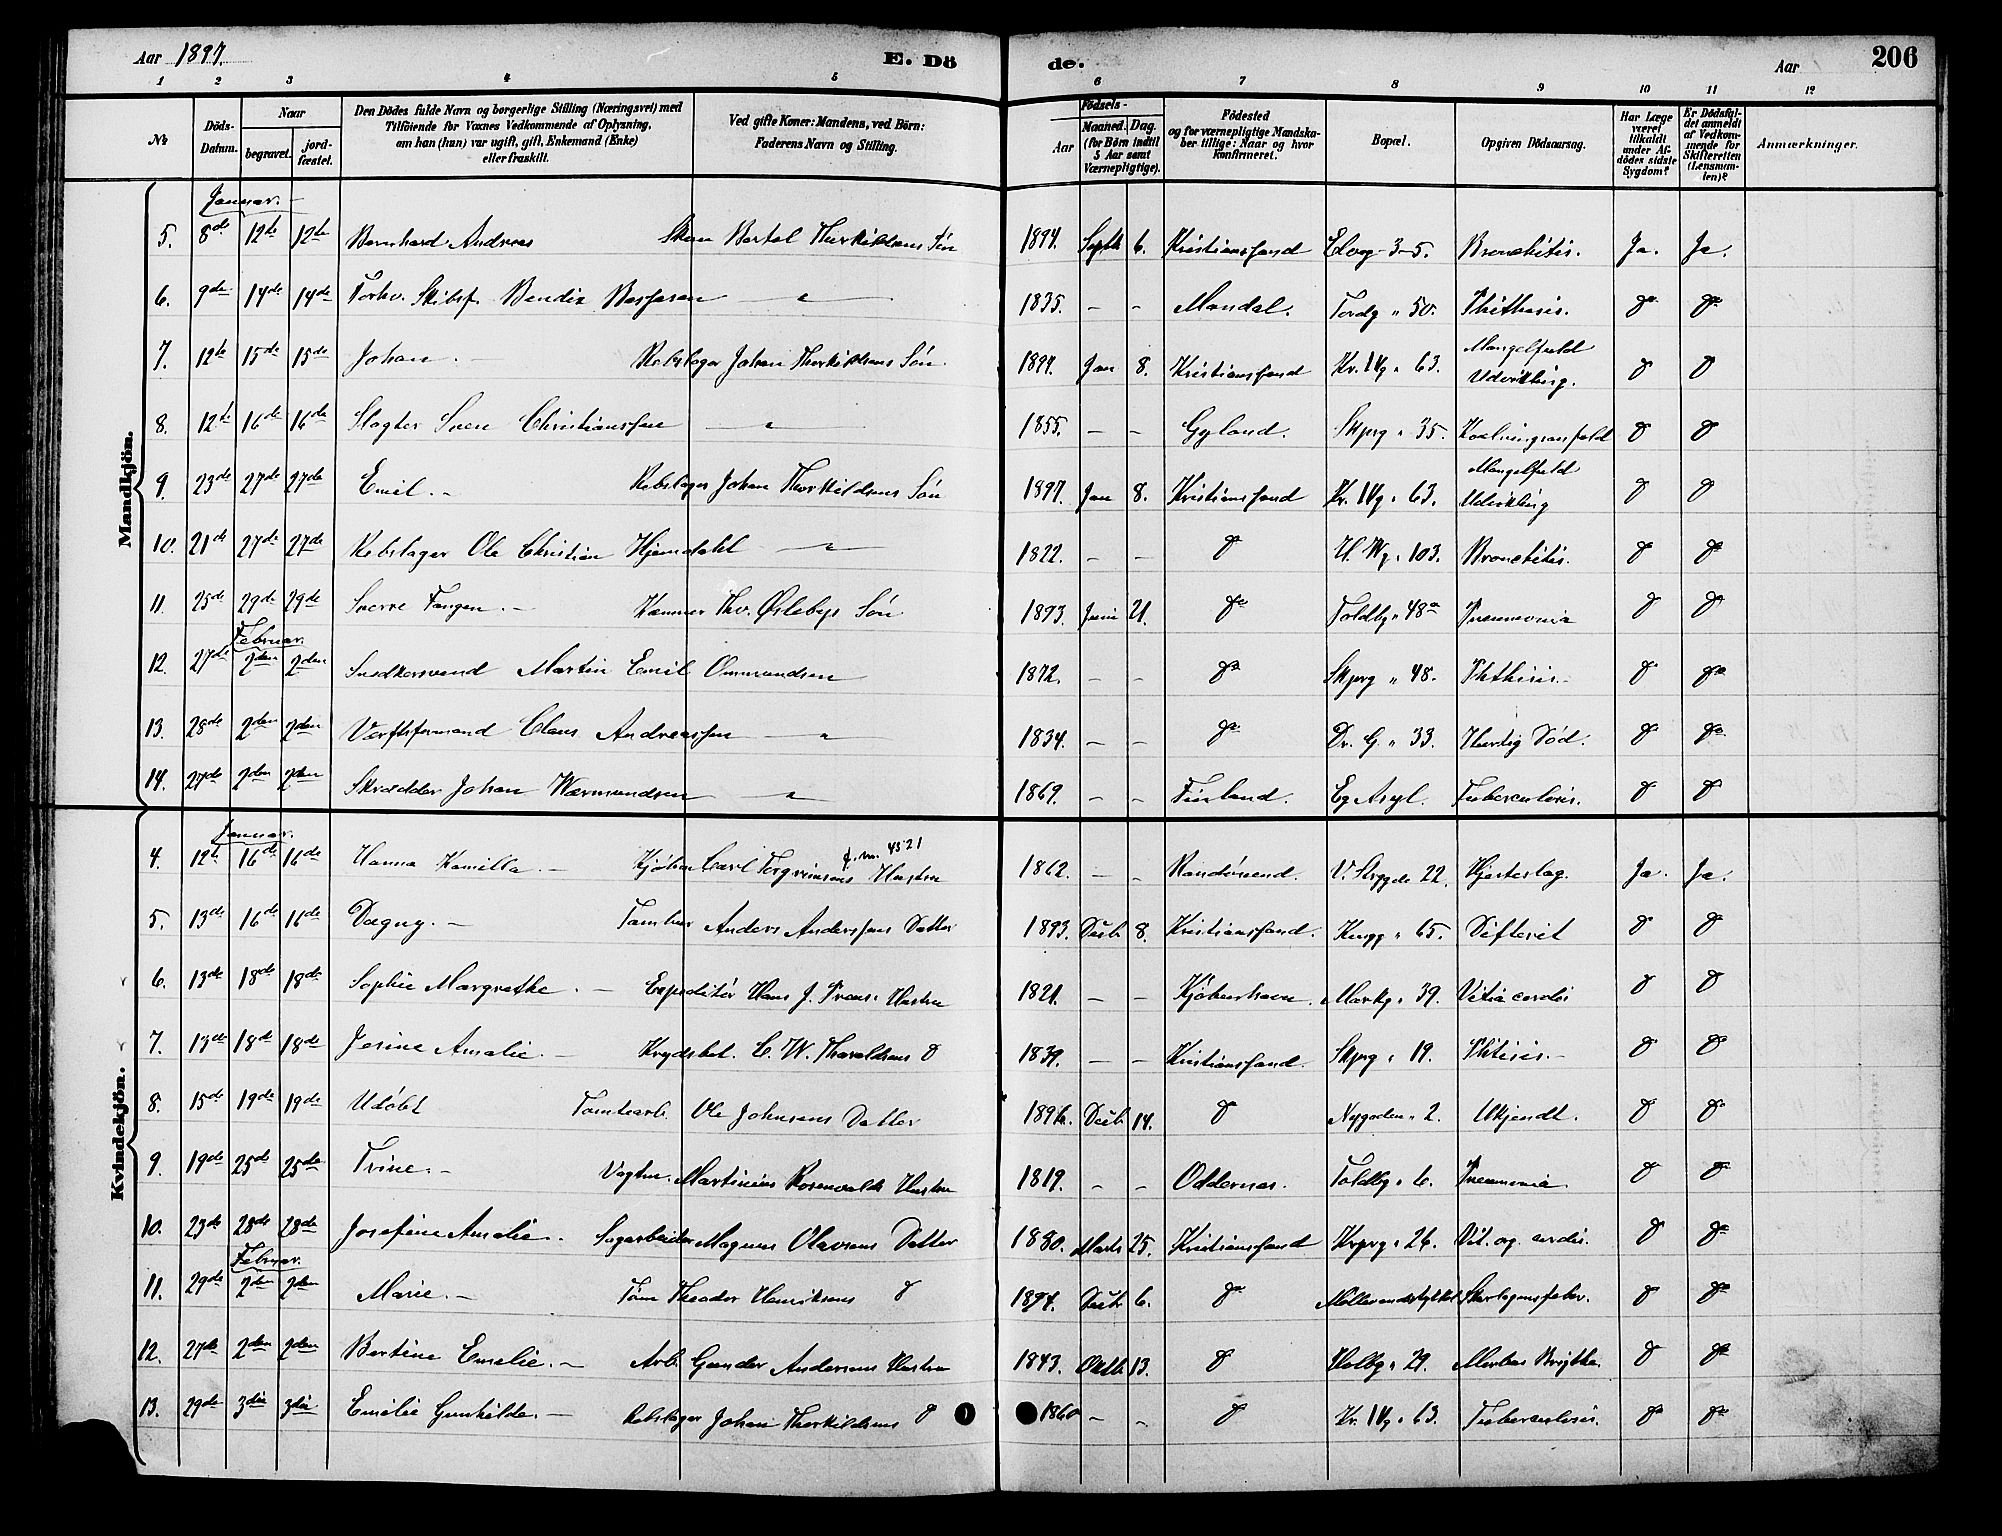 Aar 1897. E. Dö de. Aar 206
1 2 3 4 5 6 7 8 9 10 11 12
No Döds-Datum. Naar begravet. jordfæstet. Den Dödes fulde Navn og borgerlige Stilling (Næringsvei) med Tilföiende for Voxnes Vedkommende af Oplysning, om han (hun) var ugift, gift, Enkemand (Enke) eller fraskilt. Ved gifte Koner: Mandens, ved Börn: Faderens Navn og Stilling. Födsels- Aar Maaned. Dag. (for Börn indtil 5 Aar samt Værnepligtige). Födested og for værnepligtige Mandskaber tillige: Naar og hvor konfirmeret. Bopæl. Opgiven Dödsaarsag. Har Læge været tilkaldt under Afdödes sidste Sygdom? Er Dödsfaldet anmeldt af Vedkommende for Skifteretten (Lensmanden)? Anmærkninger.
Mandkjön.
Januar.
5. 8de 12te 12te Bernhard Andreas Bertel Therkildsens Sön 1894. Septb 6. Kristianssand Elveg 3-5. Bronchitis. Ja. Ja.
6. 9de 14de 14de Forhv. Skibsf. Bendix " 1835. – – Mandal. Toldg " 50. Phthisis. do do
7. 12te 15de 15de Johan. Rebslager Johan Therkildsens Sön. 1897. Jan 8. Kristianssand Kr. IVg " 63. Mangelfuld Udvikling. do do
8. 12te 16de 16de Slagter Sven Christianssen " 1855. – – Gyland. Skprg " 35. do do
9. 23de 27de 27de Emil. Rebslager Johan Therkildsens Sön 1897. Jan 8. Kristianssand Kr. IVg " 63. Mangelfuld Udvikling do do
10. 21de 27de 27de Rebslager Ole Christian Hjemdahl " 1822. – – do 103. Bronchitis. do do
11. 25de 29de 29de Sverre Fangen. Kæmner Thv. Öslebys Sön 1893. Juni 21. do Toldbg " 48a Pneumonia do do
Februar.
12. 27de 2den 2den Snedkersvend Martin Emil Ommundsen 1872. – – do Skprg " 48. Phthisis. do do
13. 28de 2den 2den Værftsformand Claus Andreassen " 1834. – – do Dr. G. " 33. Hurtig Död. do do
14. 27de 2den 2den Skrædder Johan Wærmundsen " 1869. – – Finland. Eg Asyl. Tuberculosis. do do
Kvindekjön.
Januar.
4. 12te 16de 16de Hanna Kamilla. Carl Torgrimsens Hustru f. nr. 4521 1862. – – Randösund. 22. Hjerteslag. Ja. Ja.
5. 13de 16de 16de Dagny. Tømmer Anders Anderssens Datter 1893. Decb 8. Kristianssand. Kongg " 65. Difterit do do
6. 13de 18de 18de Sophie Margrethe. Expeditör Hans J. Hustru 1821. – – Kjöbenhavn. Markg " 39. Vitia cordis do do
7. 13de 18de 18de Jesine Amalie. C. W. Tharaldsens do 1839. – – Kristianssand. Skprg " 19. Phtisis. do do
8. 15de 19de 19de Udöbt Tomtearb. Ole Johnsens Datter 1896. Decb 14. do Nygaden " 2. Ukjendt. do do
9. 19de 25de 25de Trine. Vægter Martinius Rosenvolds Hustru 1819. – – Oddernes. Toldbg " 6. Pneumonia do do
10. 23de 28de 28de Josefine Amalie. Sagarbeider Magnus Olavsens Datter 1880. Marts 25. Kristianssand Krprg " 26. Vit. og. cordis. do do
Februar.
11. 29de 2den 2den Marie. Töm Theodor Henriksens do 1894. Decb 6. do Möllevandstykket Skarlagensfeber. do do
12. 27de 2den 2den Bertine Emelie. Arb. Gunder Andersens Hustru 1843. Oktb 13. do Holbg " 29. Morbus Brigthii. do do
13. 29de 3die 3die Emilie Gunhilde. Rebslager Johan Therkildsens do 1860 – – do Kr. IVg " 63. Tuberculosis. do do